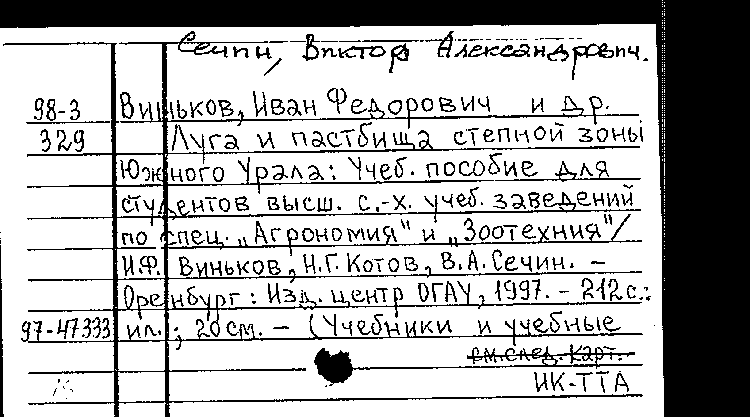 Сечин, Виктор Александрович.
98-3 Виньков, Иван Федорович и др.
329 Луга и пастбища степной зоны
Южного Урала: Учеб. пособие для
студентов высш. с.-х. учеб. заведений
по спец. „Агрономия" и „Зоотехния"/
И.Ф. Виньков, Н.Г. Котов, В.А. Сечин. –
Оренбург: Изд. центр ОГАУ, 1997. – 212 с.:
97-47333 ил.; 20 см. – (Учебники и учебные
см. след. карт.
ИК-ТТА